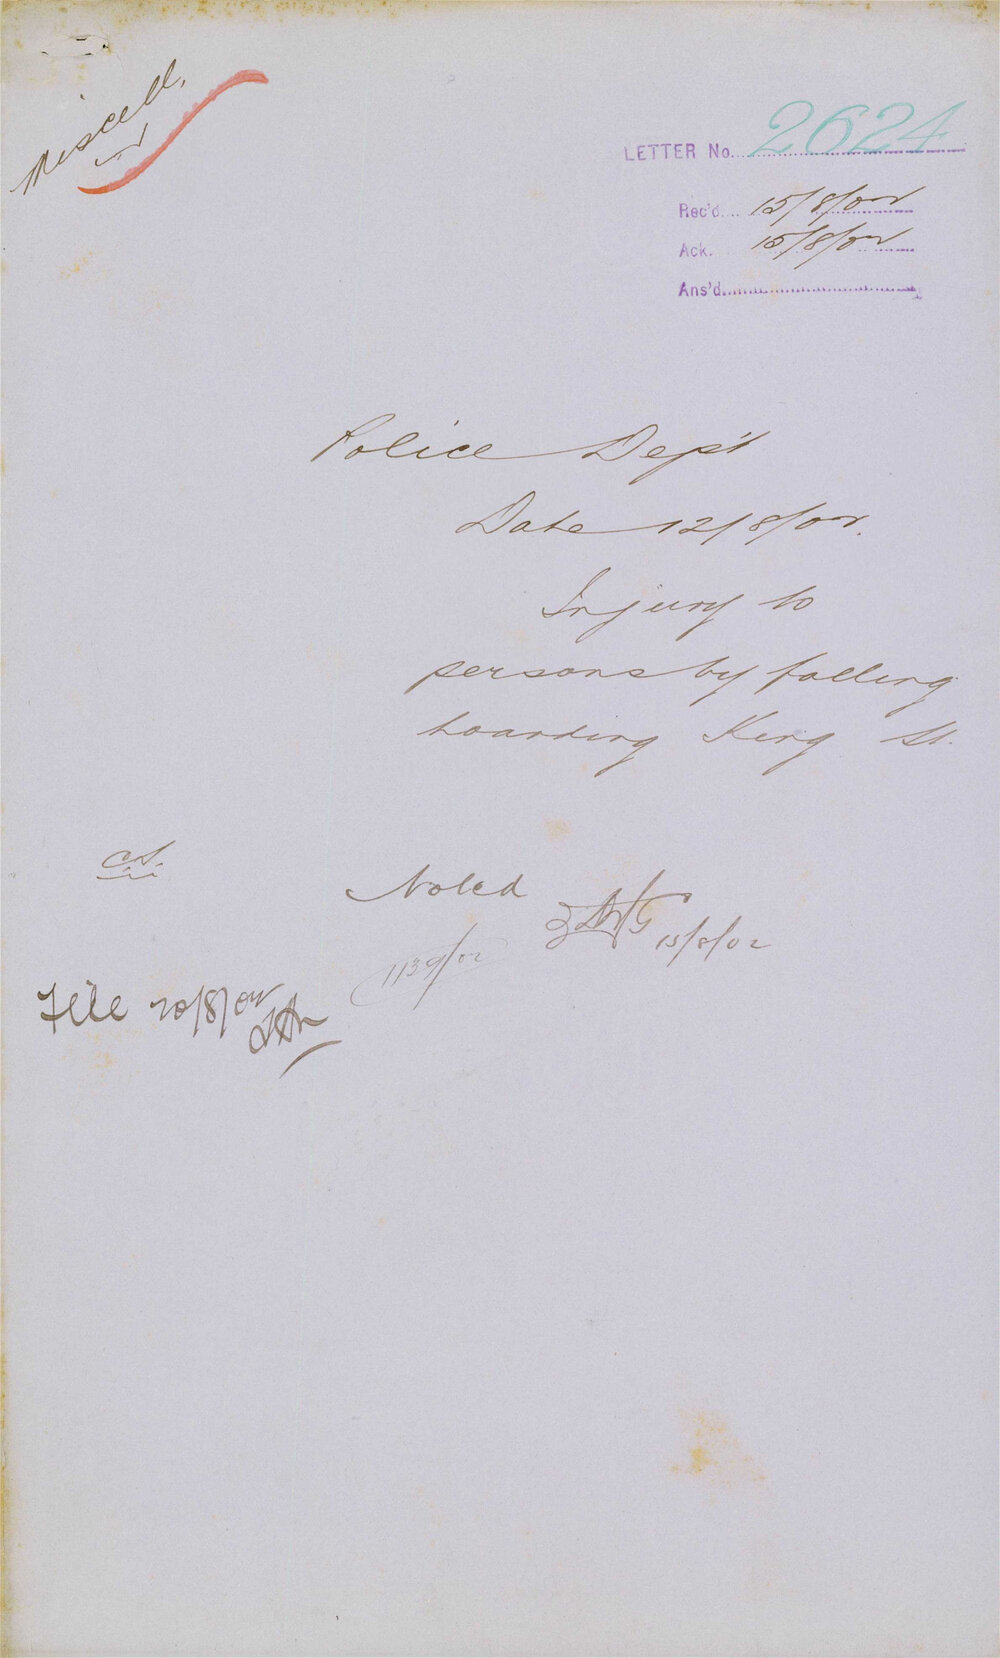 Miscell.
LETTER No. 2624
Rec'd. 15/8/02
Ack. 15/8/02
Ans'd.
Police Dep't
Date 12/8/02.
Injury to
persons by falling
hoarding King St.
Noted
15/8/02
1139/02
File 20/8/02